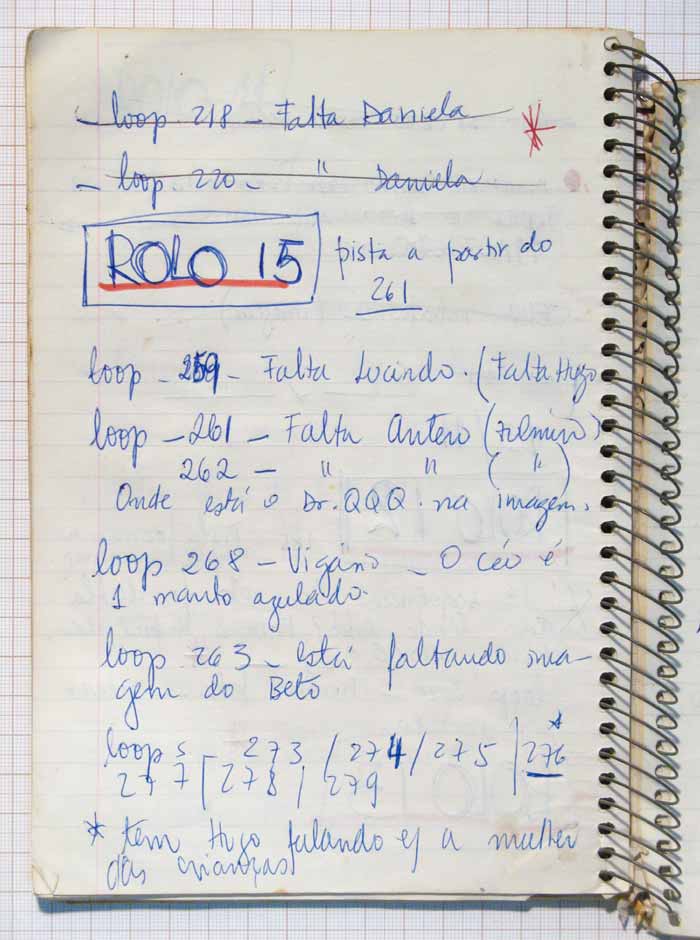 - loop 218 - Falta Daniela *
- loop 220 - " Daniela
ROLO 15 pista a partir do
261
loop - 259 - Falta Lucindo. (Falta Hugo
loop - 261 - Falta Antero (Zulmiro)
262 - " " (")
Onde está o Dr. QQQ. na imagem.
loop 268 - Vigário - O céu é
1 manto azulado.
loop 263 - está faltando ima-
gem do Beto
loop s - 273 / 274 / 275 / 276 *
277 / 278 / 279
* tem Hugo falando c/ a mulher
das crianças